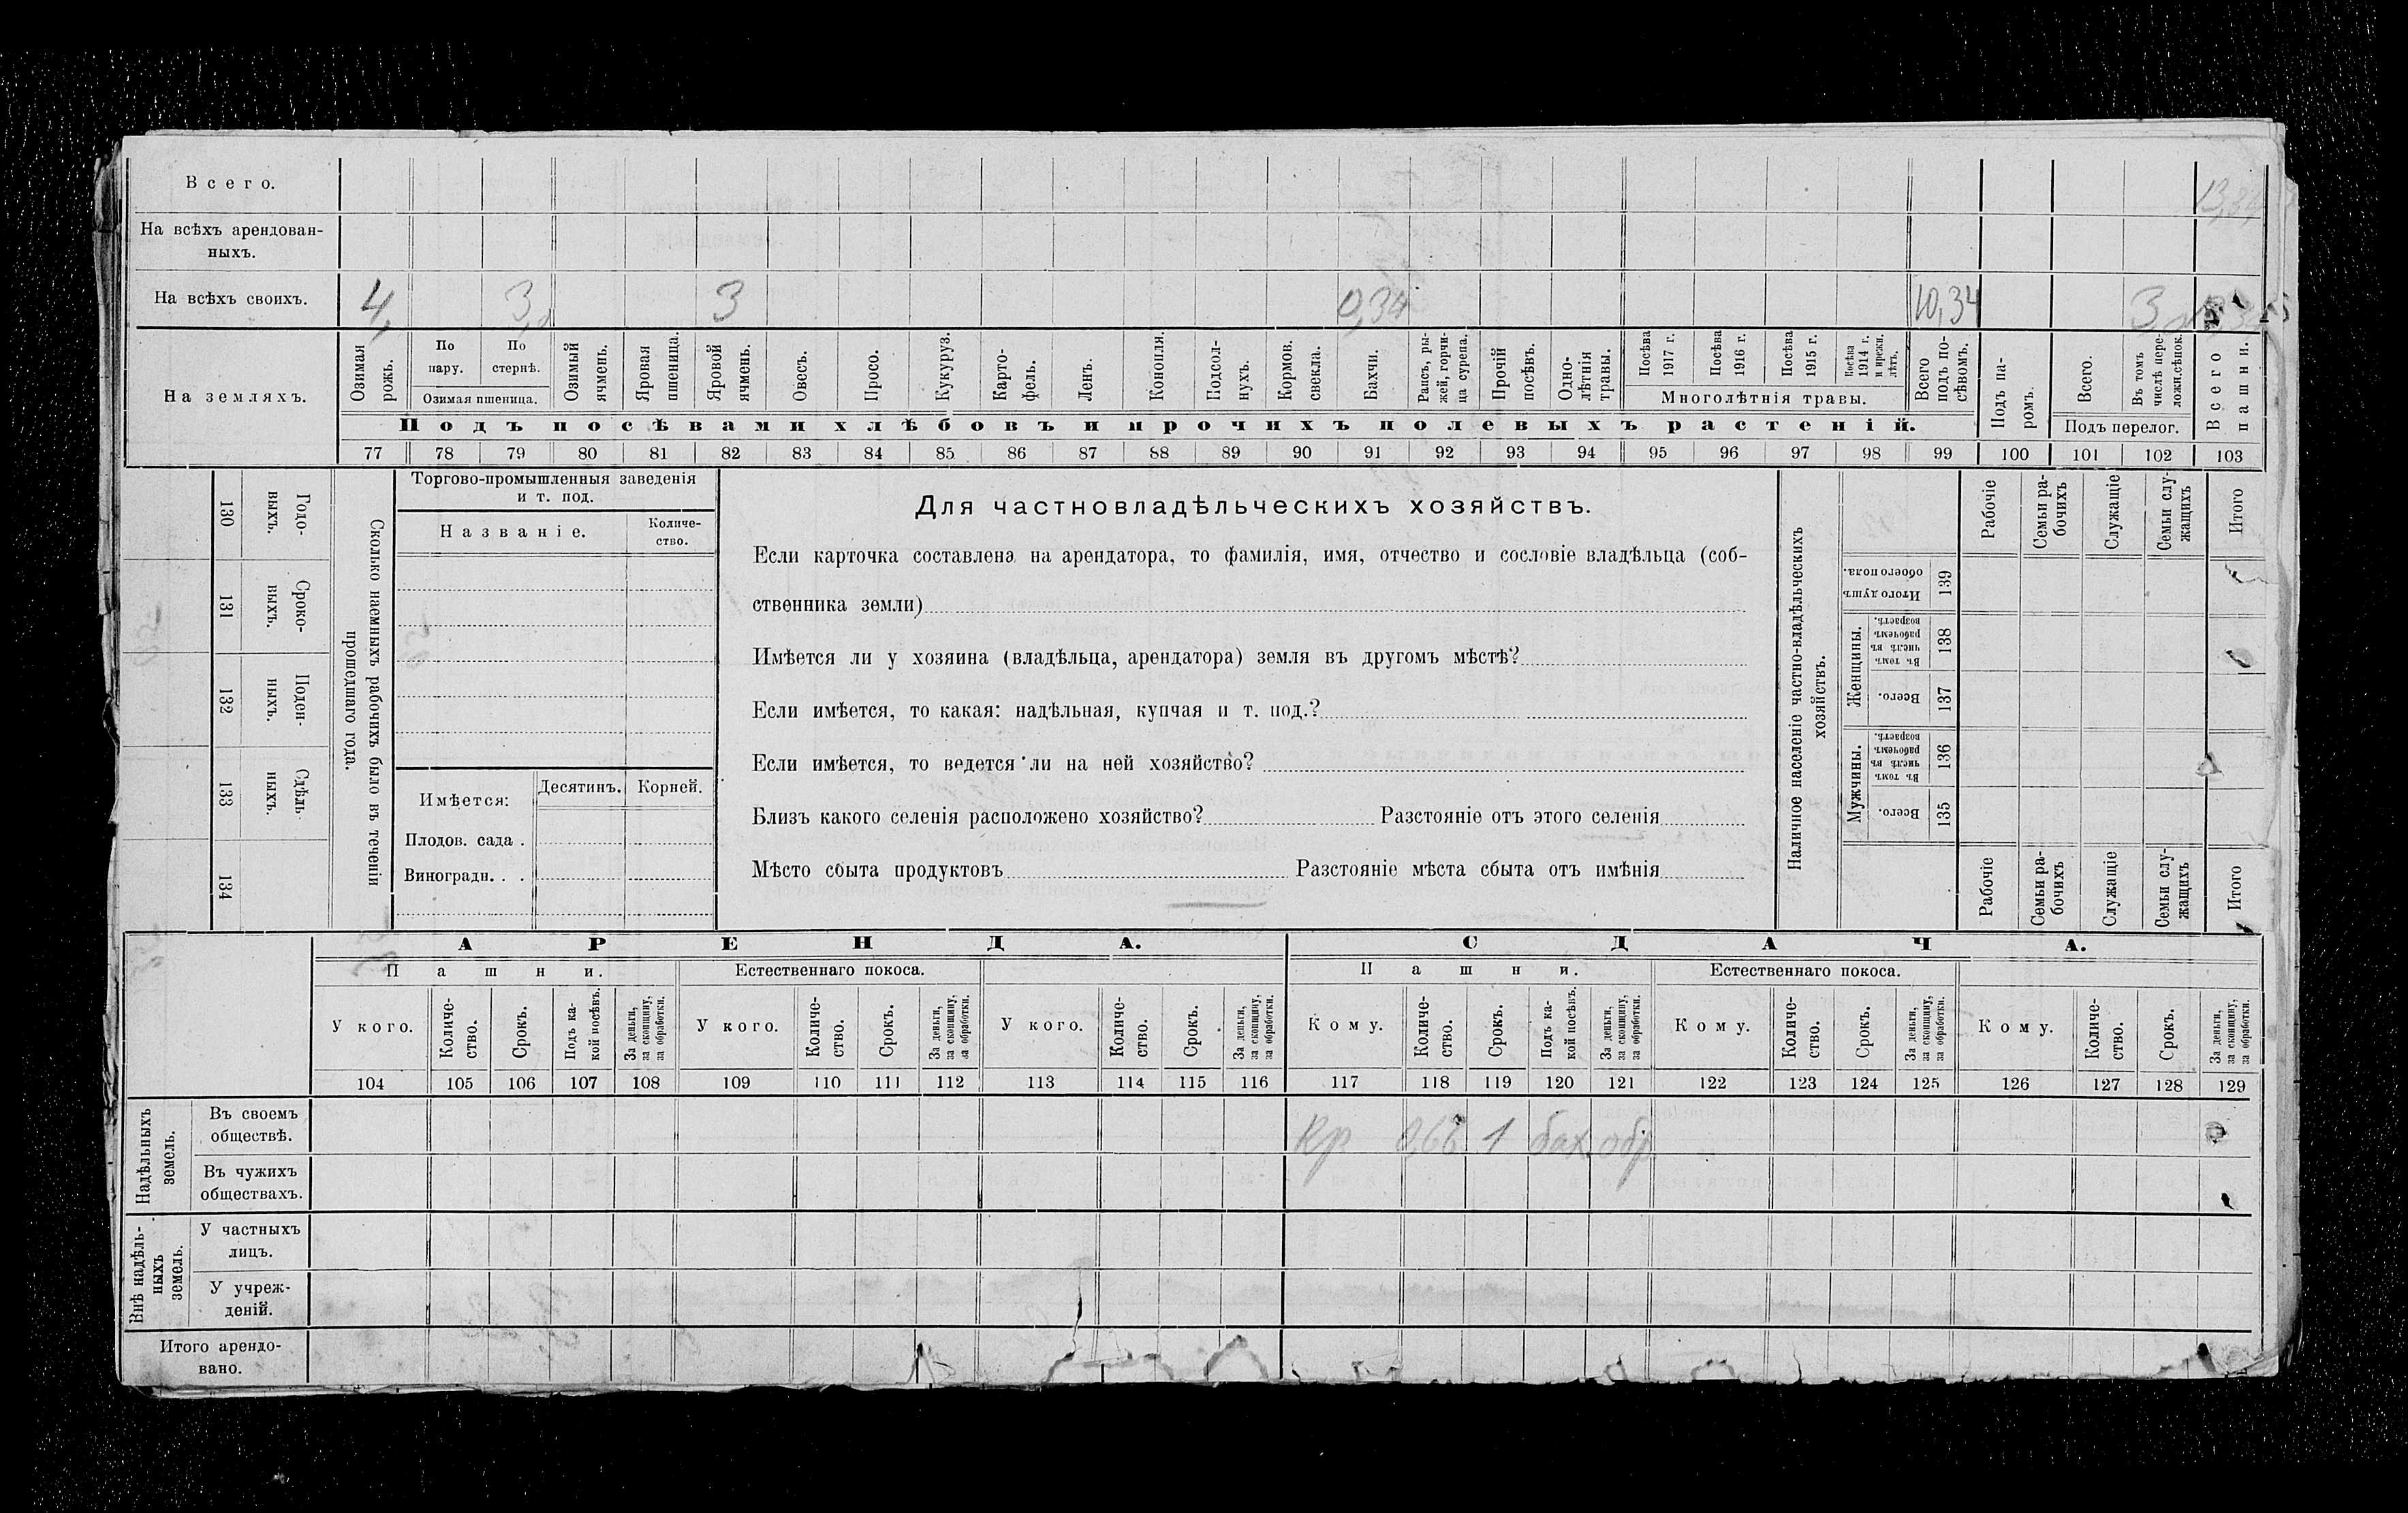 Всего. 13,34
На всѣхъ арендован-
ныхъ.
На всѣхъ своихъ. 4, 3, 3 0,34 10,34 3
На земляхъ.
Озимая рожь.
По пару.
По стернѣ.
Озимая пшеница.
Озимый ячмень.
Яровая пшеница.
Яровой ячмень.
Овесъ.
Просо.
Кукуруз.
Карто-
фель.
Ленъ.
Конопля.
Подсол-
нухъ.
Кормов. свекла.
Бахчи.
Рапсъ, ры-
жей, горчи-
ца сурепа.
Прочій посѣвъ.
Одно-
лѣтнія травы.
Посѣва 1917 г.
Посѣва 1916 г.
Посѣва 1915 г.
Посѣва 1914 г. и прежн. лѣтъ.
Многолѣтнія травы.
Всего подъ по-
сѣвомъ.
Подъ па-
ромъ.
Всего.
Въ томъ числѣ пере-
ложн.сѣнок.
Подъ перелог.
Всего пашни.
Подъ посѣвами хлѣбовъ и прочихъ полевыхъ растеній.
77 78 79 80 81 82 83 84 85 86 87 88 89 90 91 92 93 94 95 96 97 98 99 100 101 102 103
130 Годо-
выхъ.
131 Сроко-
выхъ.
132 Поден-
ныхъ.
133 Сдѣль-
ныхъ.
134
Сколько наемныхъ рабочихъ было въ теченіи
прошедшаго года.
Торгово-промышленныя заведенія
и т. под.
Названіе.
Количе-
ство.
Имѣется: Десятинъ. Корней.
Плодов. сада .
Виноградн. . .
Для частновладѣльческихъ хозяйствъ.
Если карточка составлена на арендатора, то фамилія, имя, отчество и сословіе владѣльца (соб-
ственника земли)
Имѣется ли у хозяина (владѣльца, арендатора) земля въ другомъ мѣстѣ?
Если имѣется, то какая: надѣльная, купчая и т. под.?
Если имѣется, то ведется ли на ней хозяйство?
Близъ какого селенія расположено хозяйство? Разстояніе отъ этого селенія
Мѣсто сбыта продуктовъ Разстояніе мѣста сбыта отъ имѣнія
Наличное населеніе частно-владѣльческихъ
хозяйствъ.
Рабочіе
Семьи ра-
бочихъ
Служащіе
Семьи слу-
жащихъ
Итого
Итого душъ обоего пола. 139
Женщины.
Въ томъ числѣ въ рабочемъ возрастѣ. 138
Всего. 137
Мужчины.
Въ томъ числѣ въ рабочемъ возрастѣ. 136
Всего. 135
Рабочіе
Семьи ра-
бочихъ
Служащіе
Семьи слу-
жащихъ
Итого
АРЕНДА. СДАЧА.
Пашни. Естественнаго покоса. Пашни. Естественнаго покоса.
У кого.
Количе-
ство.
Срокъ.
Подъ ка-
кой посѣвъ.
За деньги,
за скопщину,
за обработки.
У кого.
Количе-
ство.
Срокъ.
За деньги,
за скопщину,
за обработки.
У кого.
Количе-
ство.
Срокъ.
За деньги,
за скопщину,
за обработки.
Кому.
Количе-
ство.
Срокъ.
Подъ ка-
кой посѣвъ.
За деньги,
за скопщину,
за обработки.
Кому.
Количе-
ство.
Срокъ.
За деньги,
за скопщину,
за обработки.
Кому.
Количе-
ство.
Срокъ.
За деньги,
за скопщину,
за обработки.
104 105 106 107 108 109 110 111 112 113 114 115 116 117 118 119 120 121 122 123 124 125 126 127 128 129
Надѣльныхъ
земель.
Въ своемъ
обществѣ.
Кр 1 бах. обр.
Въ чужихъ
обществахъ.
Внѣ надѣль-
ныхъ
земель.
У частныхъ
лицъ.
У учреж-
деній.
Итого арендо-
вано.